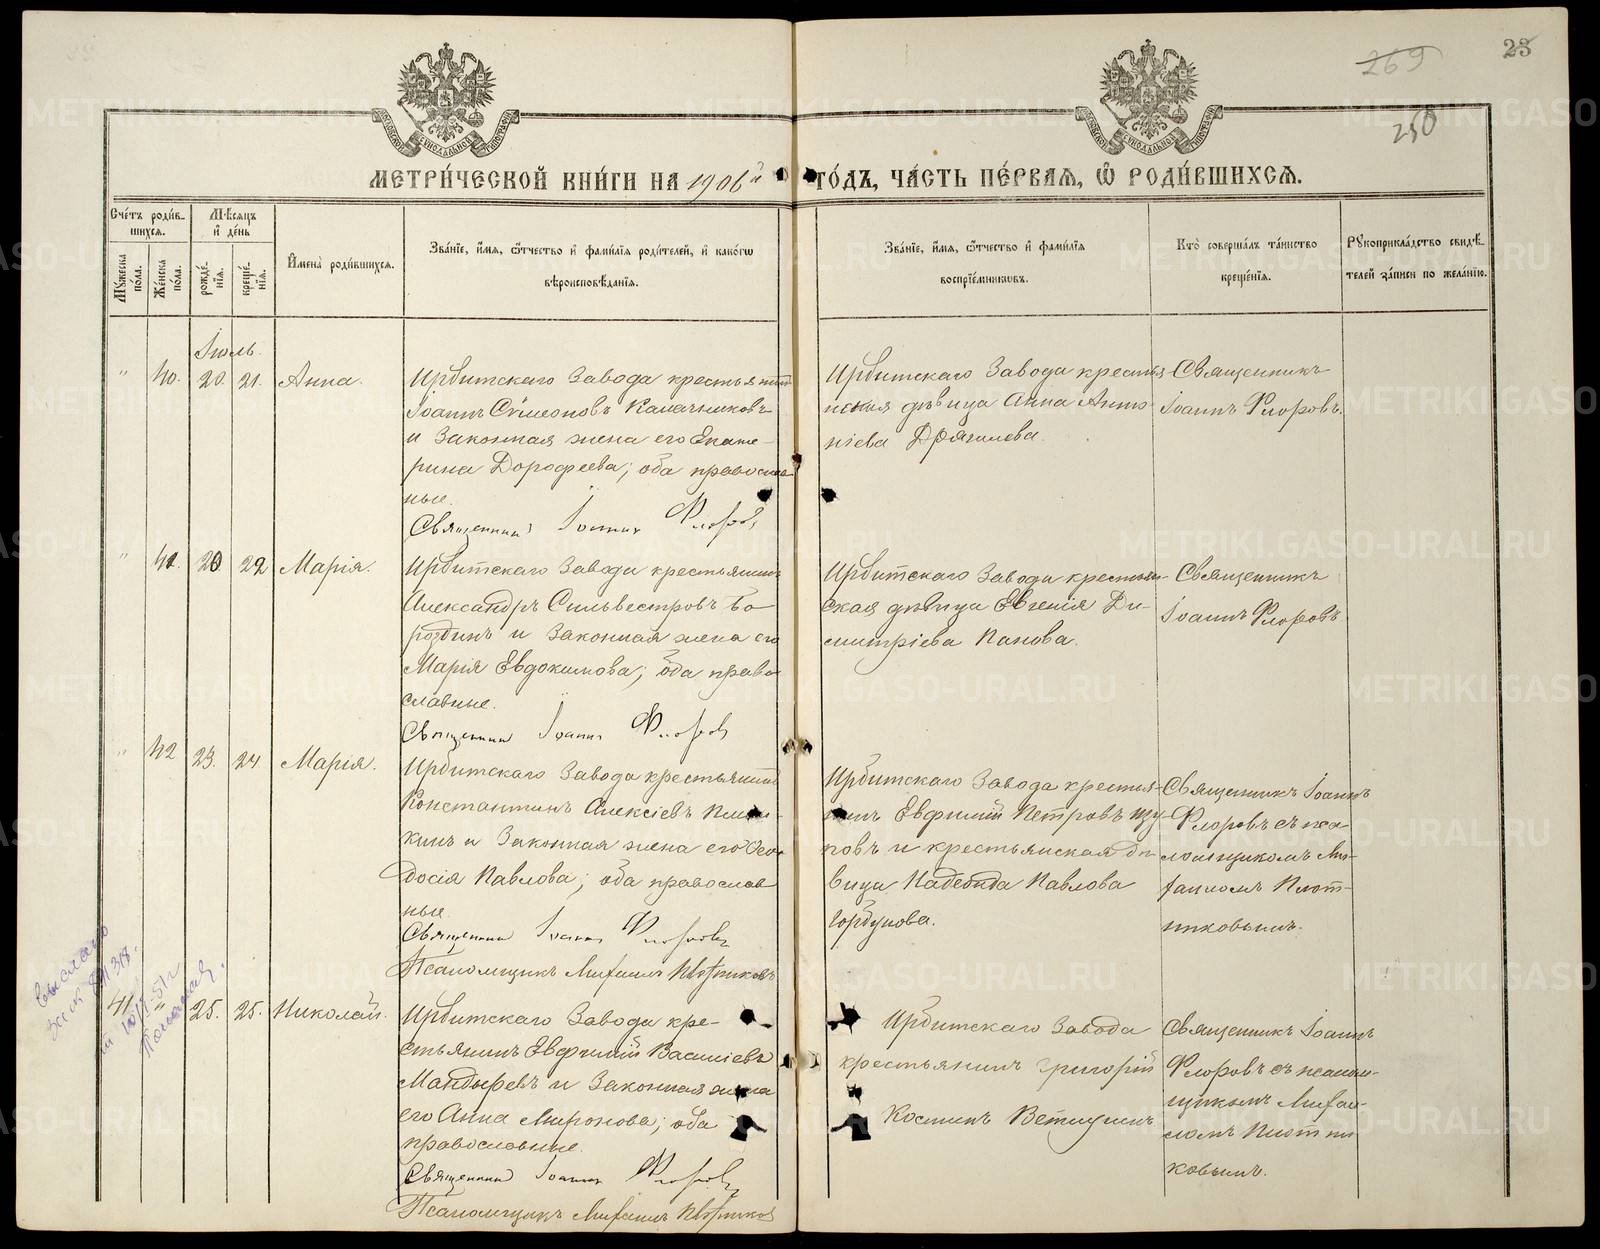 269
23
250
МЕТРИ́ЧЕСКОЙ КНИ́ГИ НА 1906й ГО́ДЪ, ЧА́СТЬ ПЕ́РВАЯ, Ѽ РОДИ́ВШИХСЯ.
Сче́тъ роди́вшихся.
Мꙋ́жеска по́ла.
Же́нска по́ла.
Мѣ́сяцъ и҆ де́нь
рожде́нїя.
креще́нїя.
И҆мена̀ роди́вшихся.
Зва́нїе, и҆́мя, ѻ҆́тчество и҆ фами́лїя роди́телей, и҆ како́гѡ
вѣроисповѣ́данїя.
Зва́нїе, и҆́мя, ѻ҆́тчество и҆ фами́лїя
воспрїе́мникѡвъ.
Кто̀ соверша́лъ та́инство
креще́нїя.
Рꙋкоприкла́дство свидѣ́телей за́писи по жела́нїю.
Іюль.
" 40. 20. 21. Анна.
Ирбитскаго Завода крестьянинъ
Іоаннъ Сѵмеоновъ Калачниковъ
и законная жена его Екате-
рина Дорофеева; оба православ
ные.
Священникъ Іоаннъ Флоровъ
Ирбитскаго Завода крестья-
нская дѣвица Анна Анто-
ніева Дрягилева.
Священникъ
Іоаннъ Флоровъ.
" 41. 20 22 Марія.
Ирбитскаго Завода крестьянинъ
Александръ Сильвестровъ Бо-
роздинъ и законная жена его
Марія Евдокимова; оба право-
славные.
Священникъ Іоаннъ Флоровъ
Ирбитскаго Завода крестьян-
ская дѣвица Евгенія Ди-
митріева Панова.
Священникъ
Іоаннъ Флоровъ.
" 42 23. 24 Марія.
Ирбитскаго Завода крестьянинъ
Константинъ Алексіевъ
кинъ и законная жена его Ѳео-
досія Павлова; оба православ
ные.
Священникъ Іоаннъ Флоровъ
Псаломщикъ Мифаилъ Плотниковъ
Ирбитскаго Завода крестья-
нинъ Евфимій Петровъ
повъ и крестьянская дѣ-
вица Надежда Павлова
Горбунова.
Священникъ Іоаннъ
Флоровъ съ пса-
ломщикомъ Ми-
фаиломъ Плот-
никовымъ.
41 " 25. 25. Николай.
Ирбитскаго Завода кре-
стьянинъ Евфимій Василіевъ
Мандыревъ и законная жена
его Анна Миронова; оба
православные.
Священникъ Іоаннъ Флоровъ
Псаломщикъ Мифаилъ Плотников
Ирбитскаго Завода
крестьянинъ Григорій
Косминъ Ветлугинъ
Священникъ Іоаннъ
Флоровъ съ псалом-
щикомъ Мифаи-
ломъ Плотни
ковымъ.
METRIKI.GASO-URAL.RU